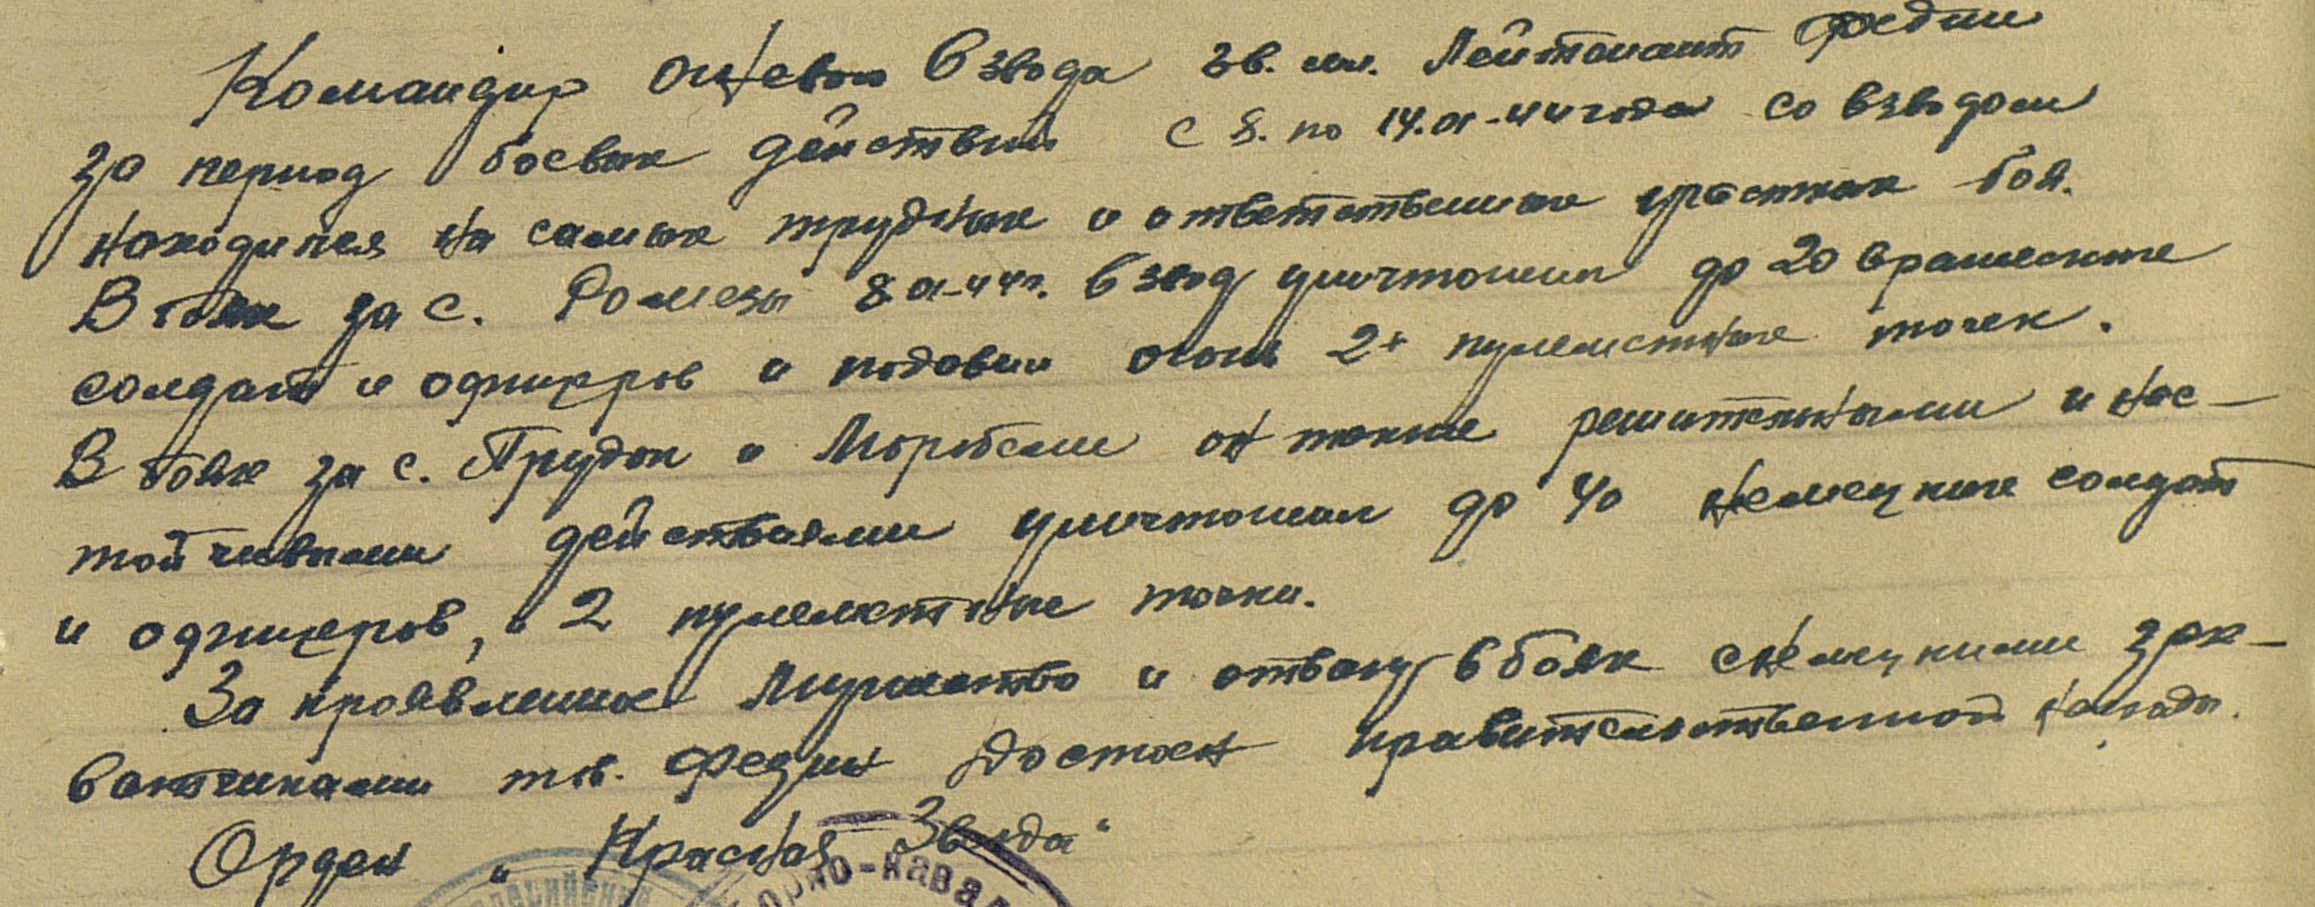 Командир огневого взвода гв. мл. Лейтенант Федин
за период боевых действий с 8. по 14.01-44 года со взводом
находился на самых трудных и ответственных участках боя.
В боях за с. 8 01-44г. взвод уничтожил до 20 вражеских
солдат и офицеров и подавил огонь 2х пулеметных точек.
В боях за с. Прудок и он также решительными и нас-
тойчивыми действиями уничтожил до 40 немецких солдат
и офицеров, и 2 пулеметные точки.
За проявленное Мужество и отвагу в боях с немецкими зах-
ватчиками тов. Федин достоен правительственной награды
Орден „Красная Звезда“
орно-кавал